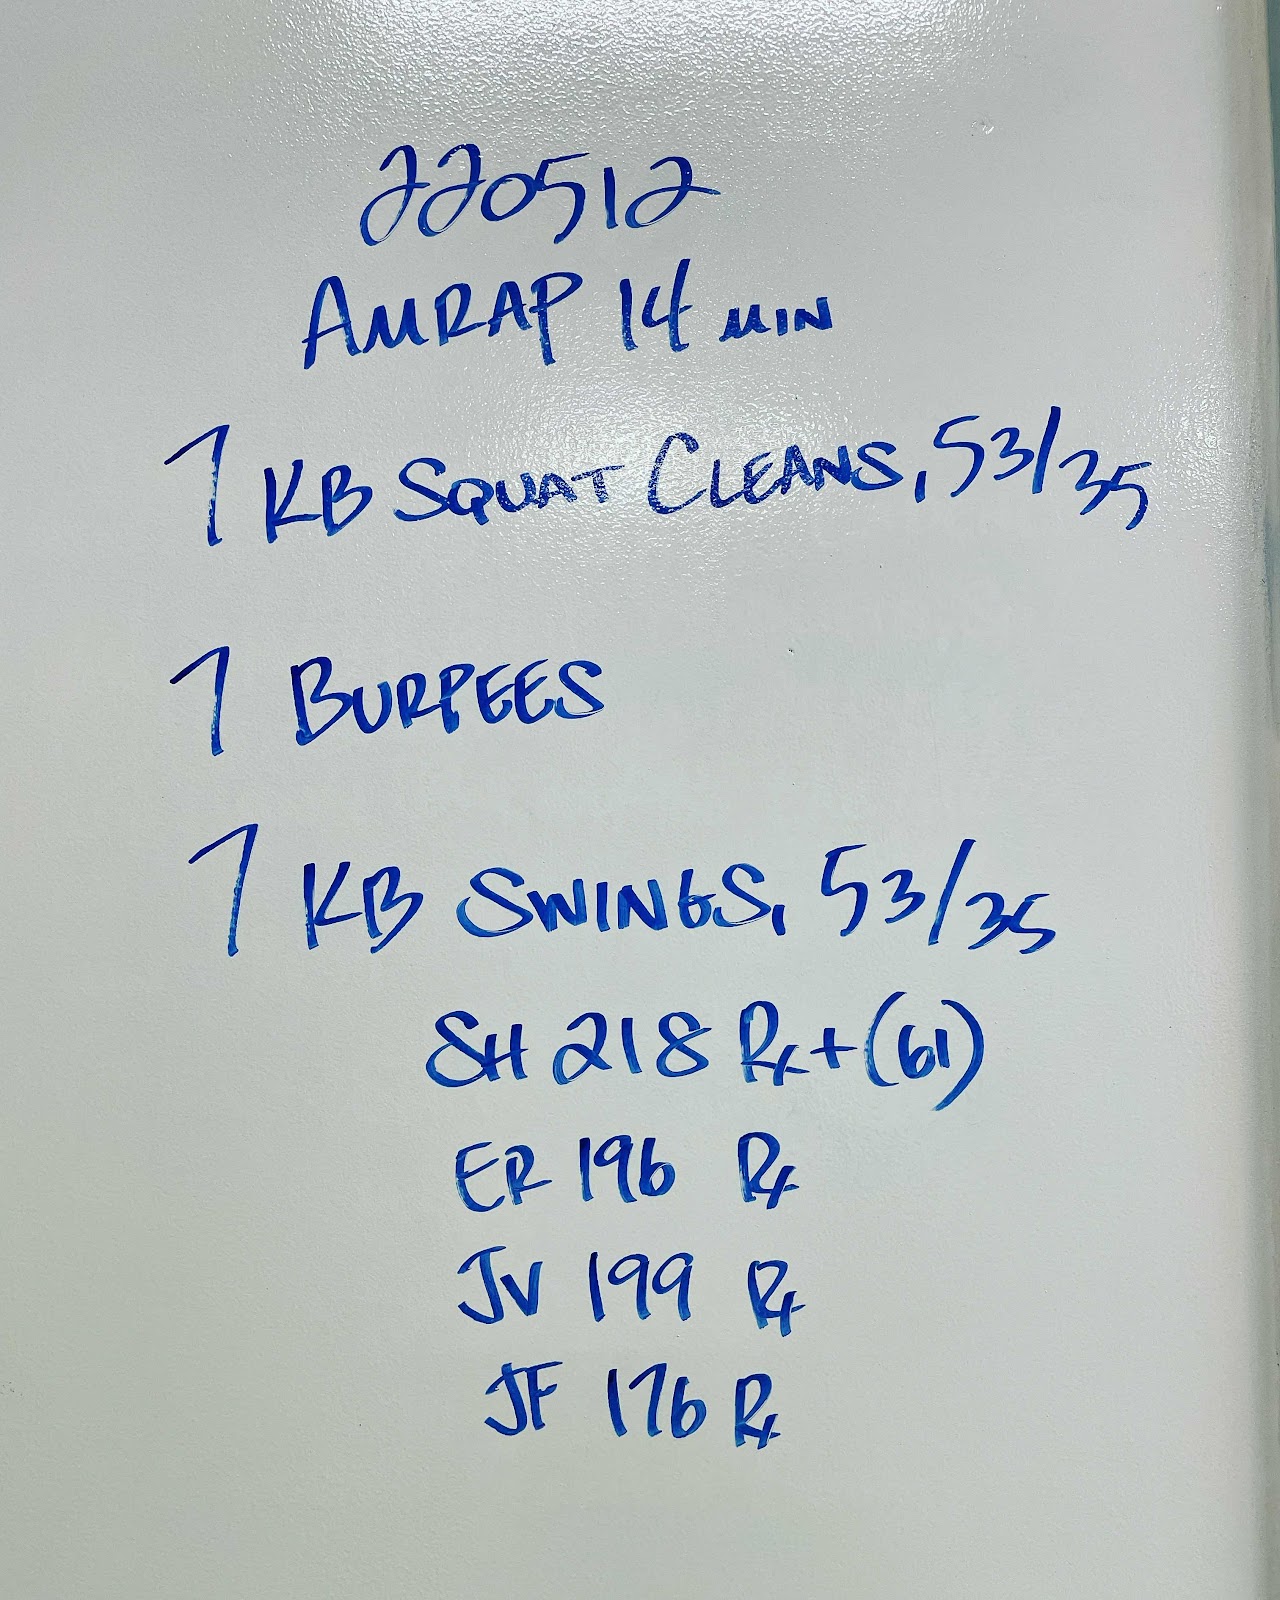 220512
AMRAP 14 MIN
7 KB SQUAT CLEANS, 53/35
7 BURPEES
7 KB SWINGS, 53/35
SH 218 Rx+(61)
ER 196 Rx
JV 199 Rx
JF 176 Rx